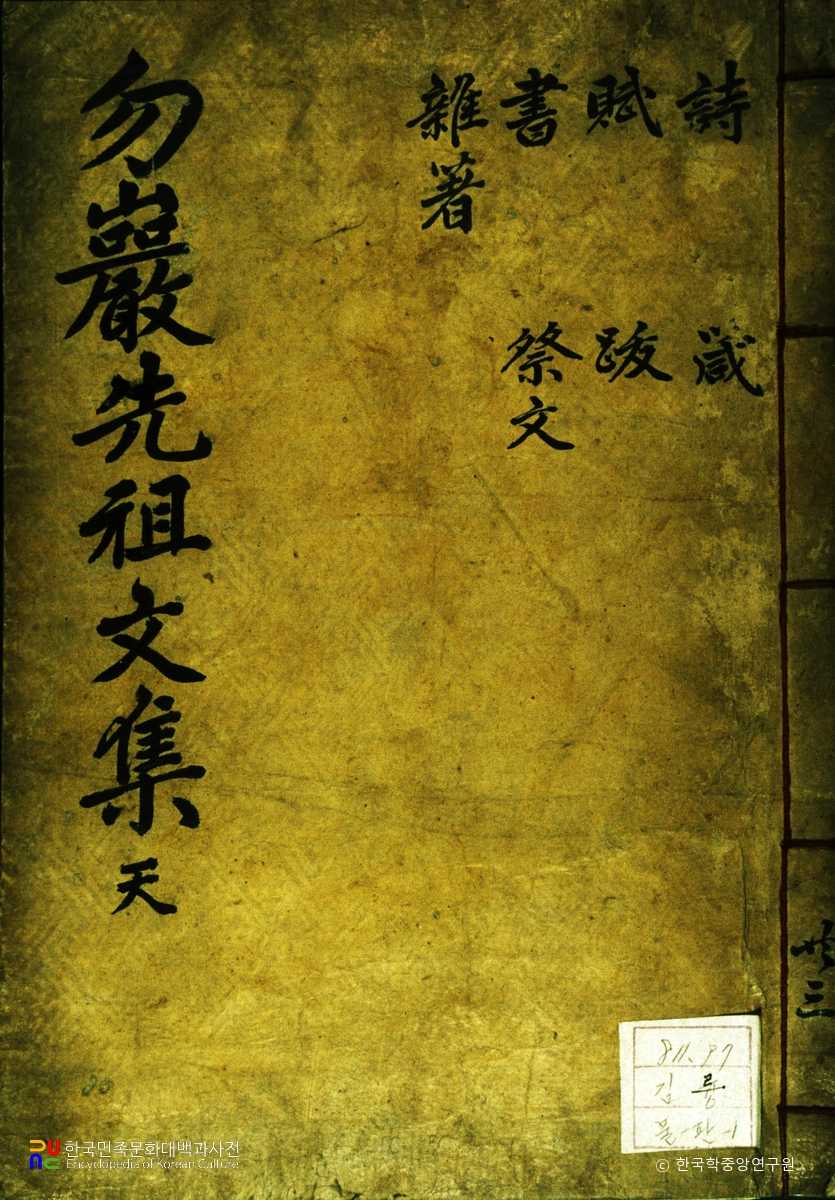 詩 箴
賦 跋
書 祭文
雜著
勿巖先祖文集 天
共三
811.97
김 륭
물-판-1
한국민족문화대백과사전
Encyclopedia of Korean Culture
© 한국학중앙연구원